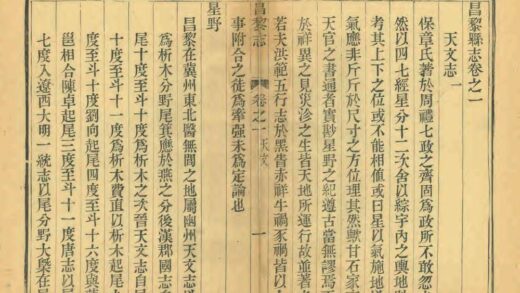 昌黎縣志卷之一
天文志一
保章氏著於周禮七政之齊固為政所不敢忽
然以四七經星分十二次舍以綜宇內之輿地
者其上下之位或不能相値或曰星以氣施地
氣應非斤斤於尺寸之方位理其然歟甘石家
天官之書通者實尠星野之紀遵古當無謬焉
於祥異之見災沴之生皆天地所運行故並著
若夫洪範五行志於黑眚赤祥牛禍豕禍皆以
昌黎志 卷之一 天文 一
事附合之徒為牽强未為定論也
星野
昌黎在冀州東北醫無閭之地屬幽州天文志
為析木分野尾箕應於燕之分後漢郡國志
尾十度至斗十度為析木之次晉天文志自尾
十度至斗十一度為析木費直以析木起尾
度至斗十度劉向起尾四度至斗十六度與
邕相合陳卓起尾三度至斗十一度唐志以尾
七度入遼西大明一統志以尾分野大槩在